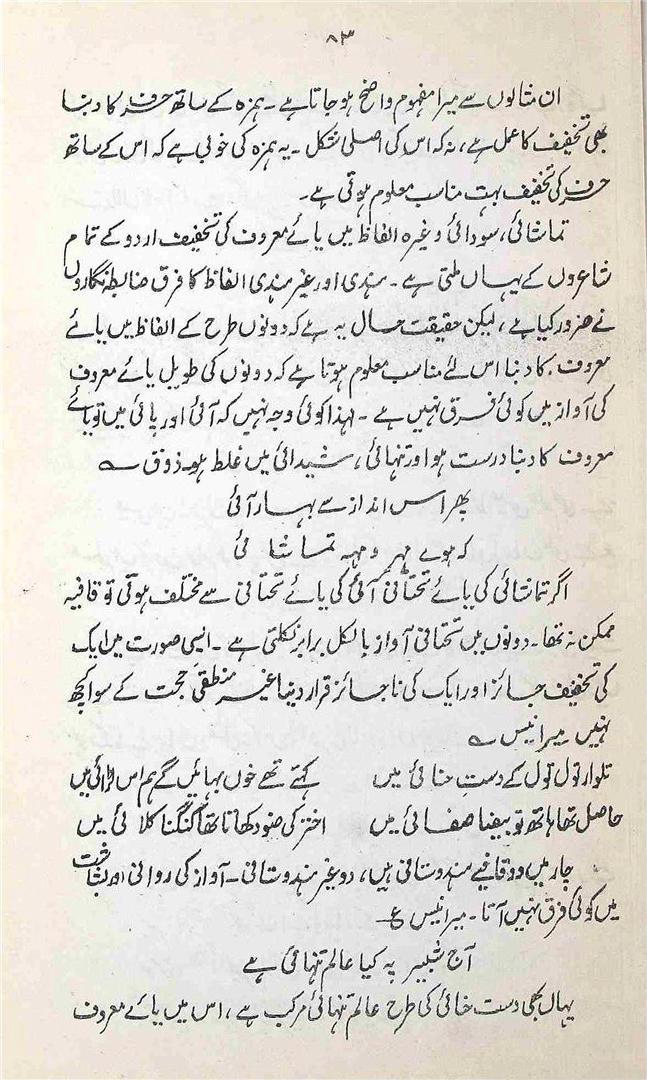 ۸۳
ان مثالوں سے میرا مفہوم واضح ہو جاتا ہے۔ ہمزہ کے ساتھ حرف کا دبنا
بھی تخفیف کا عمل ہے، نہ کہ اس کی اصلی شکل۔ یہ ہمزہ کی خوبی ہے کہ اس کے ساتھ
حرف کی تخفیف بہت مناسب معلوم ہوتی ہے۔
تماشائی، سودائی وغیرہ الفاظ میں یائے معروف کی تخفیف اردو کے تمام
شاعروں کے یہاں ملتی ہے۔ ہندی اور غیر ہندی الفاظ کا فرق ضابطہ نگاروں
نے ضرور کیا ہے، لیکن حقیقت حال یہ ہے کہ دونوں طرح کے الفاظ میں یائے
معروف کا دبنا اس لئے مناسب معلوم ہوتا ہے کہ دونوں کی طویل یائے معروف
کی آواز میں کوئی فرق نہیں ہے۔ لہذا کوئی وجہ نہیں کہ آئی اور پائی میں تو یائے
معروف کا دبنا درست ہو اور تنہائی، شیدائی میں غلط ہو۔ ذوق ؎
پھر اس انداز سے بہار آئی
کہ ہوے مہر و مہہ تماشائی
اگر تماشائی کی یائے تحتانی آئی کی یائے تحتانی سے مختلف ہوتی تو قافیہ
ممکن نہ تھا۔ دونوں میں تحتانی آواز بالکل برابر نکلتی ہے۔ ایسی صورت میں ایک
کی تخفیف جائز اور ایک کی ناجائز قرار دینا غیر منطقی حجت کے سوا کچھ
نہیں میر انیس ؎
تلوار تول تول کے دستِ حنائی میں کہتے تھے خوں بہائیں گے ہم اس لڑائی میں
حاصل تھا ہاتھ تو بیضا صفائی میں اختر کی ضو دکھاتا تھا کنگنا کلائی میں
چار میں دو قافیے ہندوستانی ہیں، دو غیر ہندوستانی۔ آواز کی روانی اور بشاشت
میں کوئی فرق نہیں آتا۔ میر انیس ع
آج شبیر پہ کیا عالم تنہائی ہے
یہاں بھی دست حنائی کی طرح عالم تنہائی مرکب ہے، اس میں یائے معروف